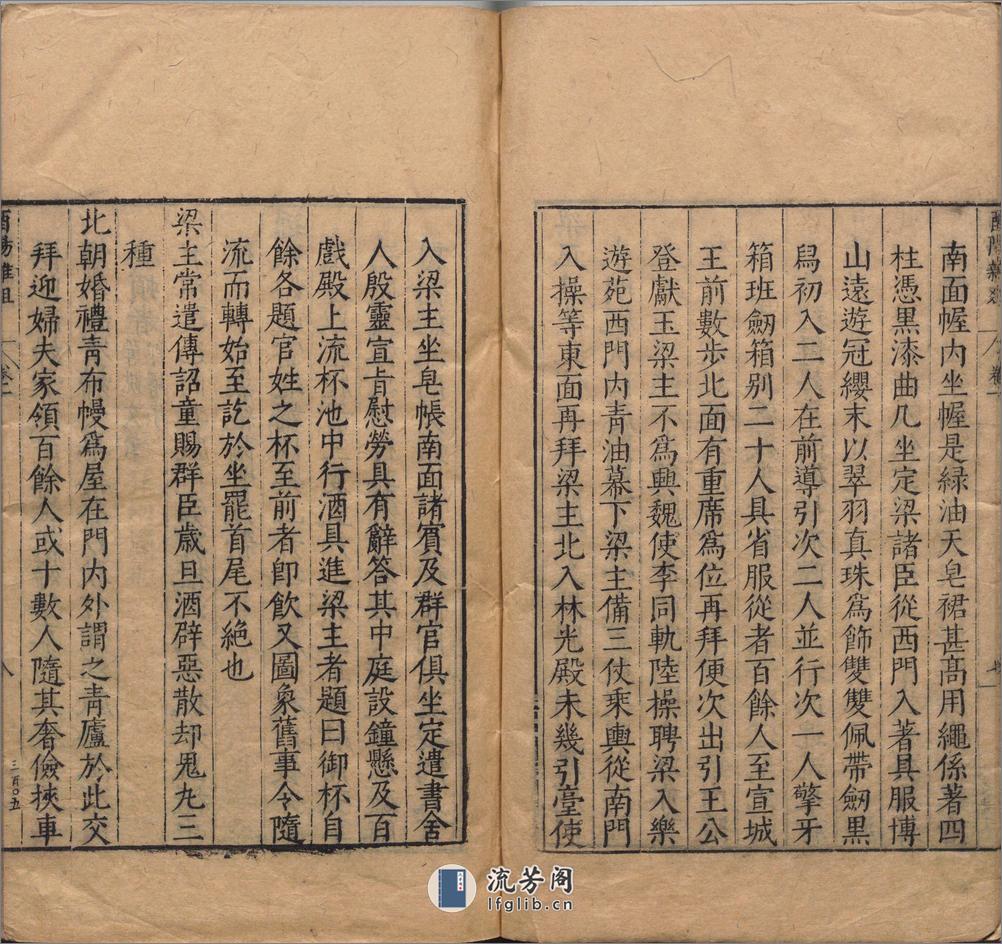 南面幄内坐幄是緑油天皂裙甚高用繩係著四
柱憑黒漆曲几坐定梁諸臣從西門入著具服博
山遠遊冠纓末以翠羽真珠爲飾雙雙佩帶劒黒
舄初入二人在前導引次二人並行次一人擎牙
箱班劒箱别二十人具省服從者百餘人至宣城
王前數步北面有重席爲位再拜便次出引王公
登獻玉梁主不爲興魏使李同軌陸操聘梁入樂
遊苑西門内青油幕下梁主備三仗乘輿從南門
入操等東面再拜梁主北入林光殿未幾引臺使
入梁主坐皂帳南面諸賓及群官俱坐定遣書舍
人殷靈宣旨慰勞具有辭答其中庭設鐘懸及百
戲殿上流杯池中行酒具進梁主者題曰御杯自
餘各題官姓之杯至前者即飲又圖象舊事令隨
流而轉始至訖於坐罷首尾不絶也
梁主常遣傳詔童賜群臣歲旦酒辟惡散却鬼丸三
種
北朝婚禮青布幔爲屋在門内外謂之青廬於此交
拜迎婦夫家領百餘人或十數人隨其奢儉挾車
酉陽雜俎
卷一
八
三百〇五
流芳阁
lfglib.cn